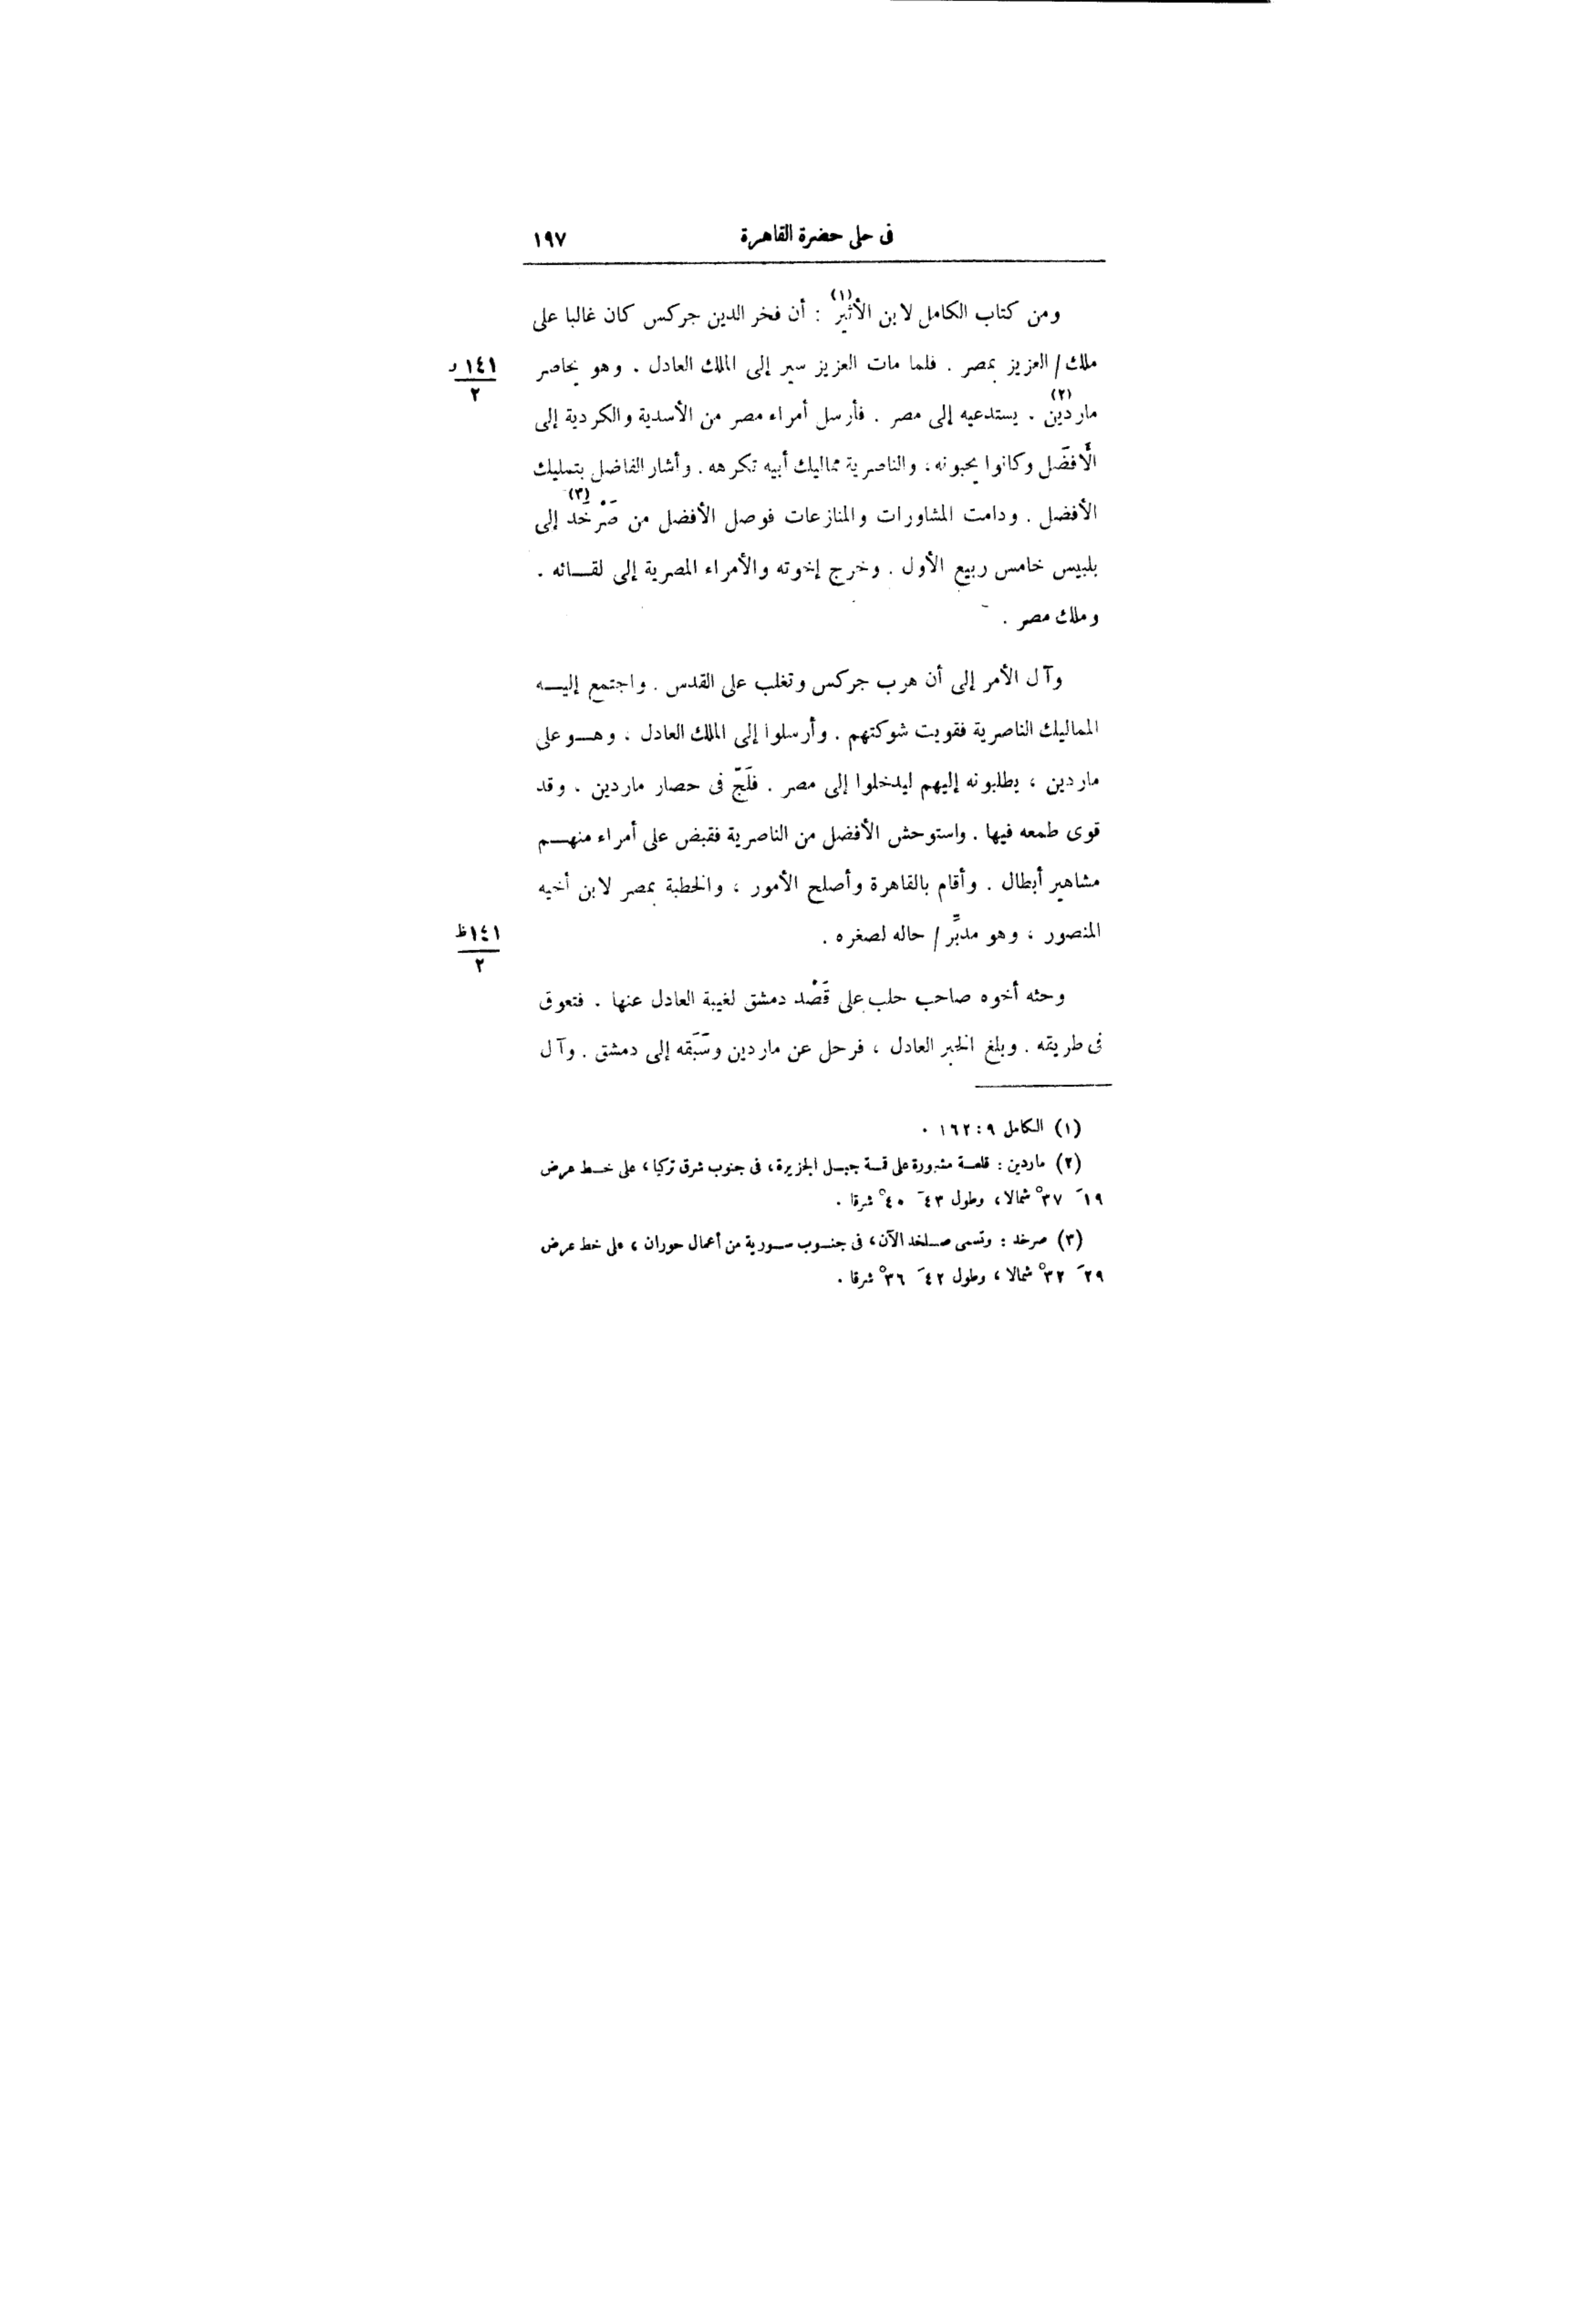 فى حلى حضرة القاهرة ١٩٧
ومن كتاب الكامل لابن الأثير (١) : أن فخر الدين جركس كان غالبا على
ملك / العزيز بمصر . فلما مات العزيز سير إلى الملك العادل . وهو يحاصر
١٤١ و
٢
ماردين (٢) . يستدعيه إلى مصر . فأرسل أمراء مصر من الأسدية والكردية إلى
الأَفضَل وكانوا يحبونه ، والناصرية مماليك أبيه تكرهه . وأشار الفاضل بتمليك
الأفضل . ودامت المشاورات والمنازعات فوصل الأفضل من صَرْخَد (٣) إلى
بلبيس خامس ربيع الأول . وخرج إخوته والأمراء المصرية إلى لقـــائه .
وملك مصر .
وآل الأمر إلى أن هرب جركس وتغلب على القدس . واجتمع إليـــه
المماليك الناصرية فقويت شوكتهم . وأرسلوا إلى الملك العادل ، وهـــو على
ماردين ، يطلبونه إليهم ليدخلوا إلى مصر . فلَجّ فى حصار ماردين . وقد
قوى طمعه فيها . واستوحش الأفضل من الناصرية فقبض على أمراء منهـــم
مشاهير أبطال . وأقام بالقاهرة وأصلح الأمور ، والخطبة بمصر لابن أخيه
المنصور ، وهو مدبِّر / حاله لصغره .
١٤١ ظ
٢
وحثه أخوه صاحب حلب على قَصْد دمشق لغيبة العادل عنها . فتعوق
فى طريقه . وبلغ الخبر العادل ، فرحل عن ماردين وسَبَقه إلى دمشق . وآل
(١) الكامل ٩ : ١٦٢ .
(٢) ماردين : قلعـــة مشهورة على قمـــة جبـــل الجزيرة ، فى جنوب شرق تركيا ، على خـــط عرض
١٩ َ ٣٧ ْ شمالا ، وطول ٤٣ َ ٤٠ ْ شرقا .
(٣) صرخد : وتسمى صـــلخد الآن ، فى جنـــوب ســـورية من أعمال حوران ، على خط عرض
٢٩ َ ٣٢ ْ شمالا ، وطول ٤٢ َ ٣٦ ْ شرقا .